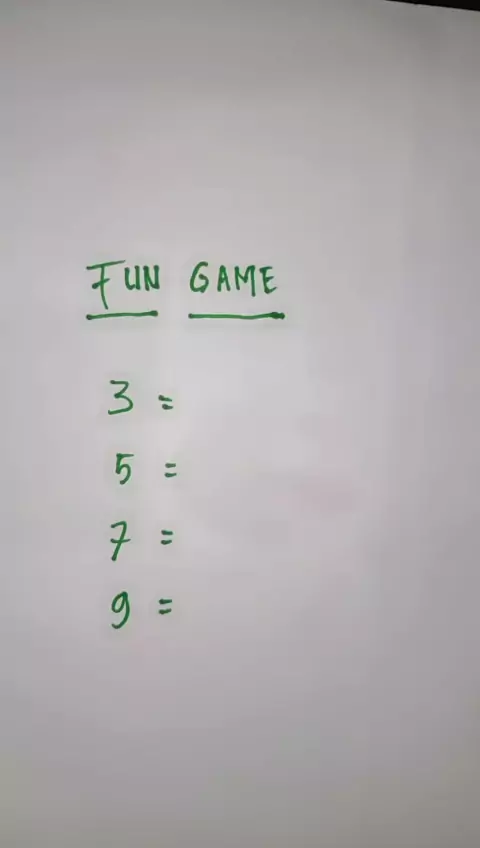 FUN GAME
3 =
5 =
7 =
9 =